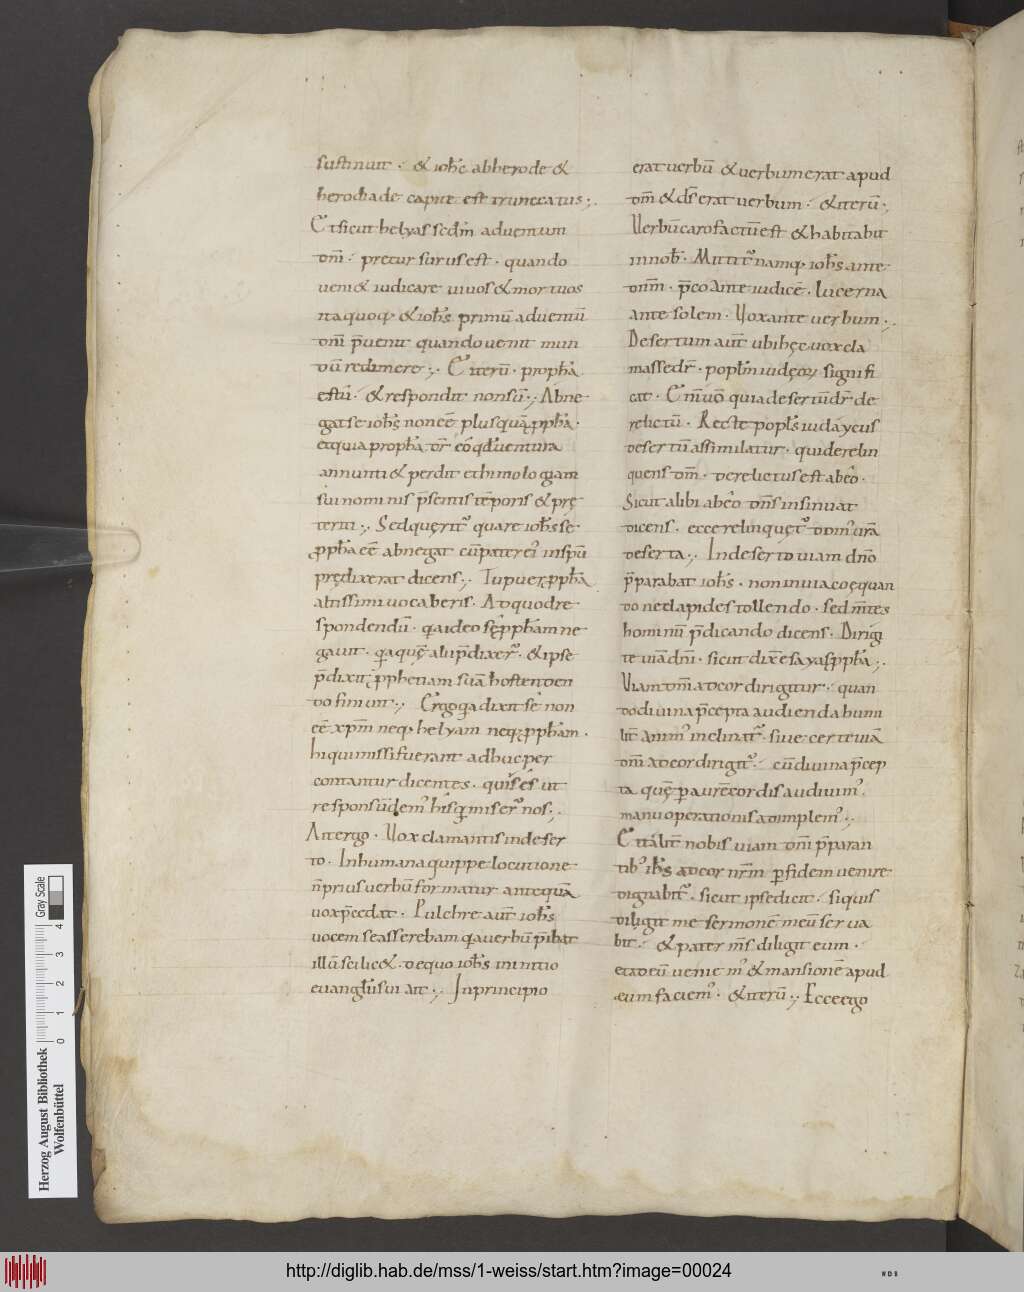 sustinuit · & ioh̅s ab herode &
herodiade capite est truncatus ;.
Et sicut helyas scd̅m aduentum
dn̅i · precursurus est · quando
ueni& iudicare uiuos & mortuos
ita quoq; & ioh̅s primu̅ aduentu̅
dn̅i p̅uenit quando uenit mun
du̅ redimere ;. Et iteru̅ · proph̅a
es tu · & respondit non su̅ ;. Abne
gat se ioh̅s non ee̅ plusqua̅ ꝓph̅a ·
et quia proph̅a dr̅ eo̅ qd̅ uentura
annunti& perdit ethimologiam
sui nominis p̅sentis te̅poris & prę
teriti ;. Sed quęrit̉ quare ioh̅s se
ꝓph̅a ee̅ abnegat cu̅ pater eỉ in sp̅u
prędixerat dicens ;. Tu puer ꝓph̅a
altissimi uocaberis · Ad quod re
spondendu̅ · qa ideo sę ꝓph̅am ne
gauit · qa quę alii p̅dixer̉ · & ipse
p̅dixit ꝓphetiam sua̅ hostenden
do finiuit ;. Ergo qa dixit se non
ee̅ xp̅m neq; helyam neq; ꝓph̅am ·
hi qui missi fuerant adhuc per
contantur dicentes · quis es ut
responsu̅ dem̉ his qi miser̉ nos ;.
Ait ergo · Uox clamantis in deser
to · In humana quippe locutione
n̅ prius uerbu̅ formatur antequa̅
uox p̅cedat · Pulchre aut̅ ioh̅s
uocem se asserebam qa uerbu̅ p̅ibat
illu̅ scilic& · de quo ioh̅s in initio
euangl̅ii sui ait ;. In principio
erat uerbu̅ & uerbum erat apud
dm̅ & ds̅ erat uerbum · & iteru̅ ;.
Uerbu̅ caro factu̅ est & habitabit
in nob̅ · Mittit̉ namq; ioh̅s ante
dn̅m · p̅co ante iudice̅ · lucerna
ante solem · Uox ante uerbum ;.
Desertum aut̅ ubi hęc uox cla
masse dr̅ · popl̅m iudęoꝝ signifi
cat · Eni̅uo̅ quia desertu̅ dr̅ de
relictu̅ · Recte popl̅s iudaycus
desertu̅ assimilatur · qui derelin
quens dm̅ · derelictus est ab eo ·
Sicut alibi ab eo dn̅s insinuat
dicens · ecce relinquęt̉ dom̉ ura̅
deserta ;. In deserto uiam dn̅o
p̅parabat ioh̅s · non in uia coęquan
do nec lapides tollendo · sed m̅tes
hominu̅ p̅dicando dicens · Dirigi
te uia̅ dn̅i · sicut dix̅ esayas ꝓph̅a ;.
Uiam dn̅i ad cor dirigitur · quan
do diuina p̅cepta audienda humi
lit̅ anim̉ inclinat̉ · siue certe uia̅
dn̅i ad cor dirigit̉ · cu̅ diuina p̅cep
ta quę p̱ aure̅ cordis audiuim̉ ·
manu operationis adimplem̉ ;.
Et talit̅ nobis uiam dn̅i p̅paran
tib̉ ih̅s ad cor nr̅m p̱ fidem uenire
dignabit̉ · sicut ipse dicit · si quis
diligit me sermone̅ meu̅ serua
bit · & pater m̅s diligit eum ·
et ad eu̅ uenie m̉ & mansione̅ apud
eum faciem̉ · & iteru̅ ;. Ecce ego
Herzog August Bibliothek
Wolfenbüttel
0 1 2 3 4
Gray Scale
http://diglib.hab.de/mss/1-weiss/start.htm?image=00024